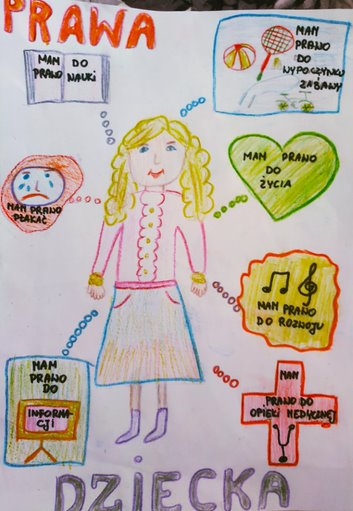 PRAWA
MAM DO
PRAWO NAUKI
MAM
PRAWO
DO
WYPOCZYNKU
ZABAWY
MAM PRAWO
DO
ŻYCIA
MAM PRAWO
PŁAKAĆ
MAM PRAWO
DO ROZWOJU
MAM
PRAWO
DO
INFORMA-
CJI
MAM
PRAWO DO
OPIEKI MEDYCZNEJ
DZIECKA